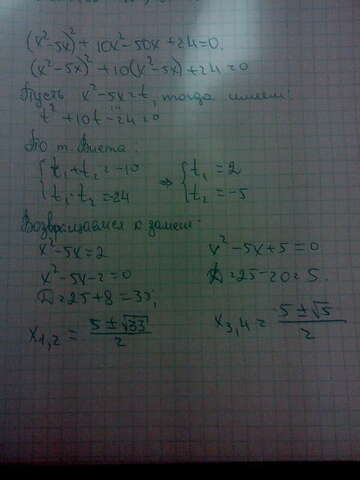 (x²-5x)²+10x²-50x+24=0.
(x²-5x)²+10(x²-5x)+24=0
Пусть x²-5x=t, тогда имеем:
t²+10t-24=0
По т. Виета:
{t₁+t₂=-10 ⇒ {t₁=2
{t₁·t₂=-24 {t₂=-5
Возвращаемся к замене:
x²-5x=2 x²-5x+5=0
x²-5x-2=0 D=25-20=5.
D=25+8=33;
x₁,₂=(5±√33)/2 x₃,₄=(5±√5)/2